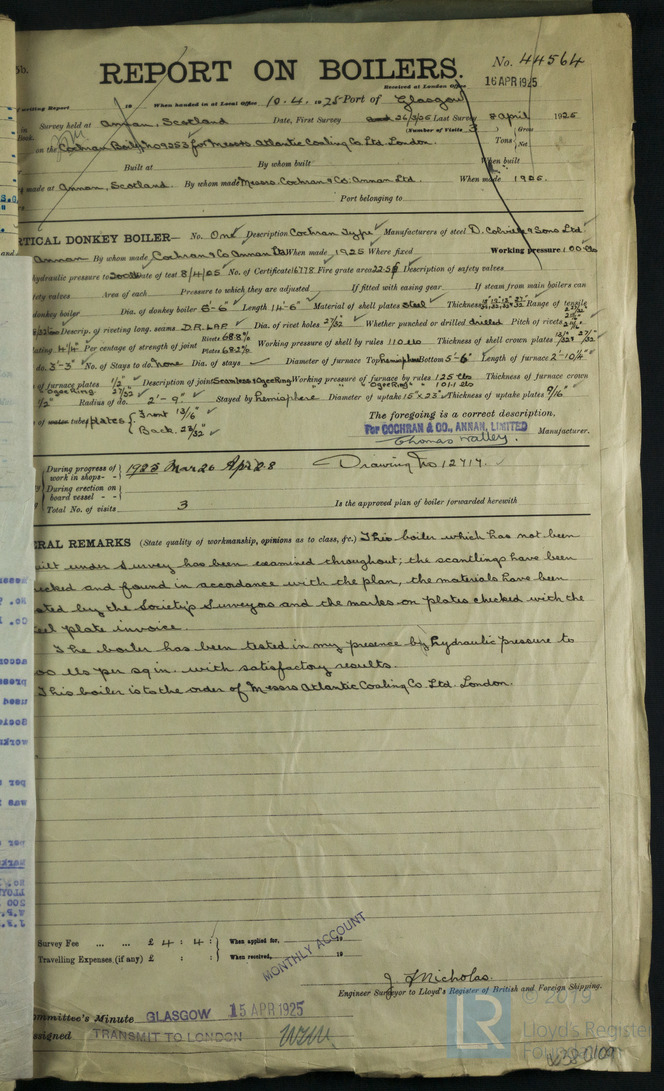 5b.
REPORT ON BOILERS.
No. 44564
Received at London Office
16 APR 1925
Writing Report 19 When handed in at Local Office 10.4.1925 Port of Glasgow
Survey held at Annan, Scotland Date, First Survey 26/3/25 Last Survey 8 April 1925
(Number of Visits 3)
Gross
Tons
Net
on the Cochran Boiler No 9253 for Messrs Atlantic Coaling Co. Ltd. London.
Built at By whom built When built
made at Annan, Scotland. By whom made Messrs. Cochran & Co. Annan Ltd. When made 1925.
Port belonging to
RTICAL DONKEY BOILER— No. One Description Cochran Type Manufacturers of steel D. Colville & Sons Ltd.
Annan By whom made Cochran & Co Annan Ltd When made 1925 Where fixed Working pressure 100 lbs
hydraulic pressure to 200 lbs Date of test 8/4/25 No. of Certificate Fire grate area Description of safety valves
fety valves Area of each Pressure to which they are adjusted If fitted with easing gear If steam from main boilers can
donkey boiler Dia. of donkey boiler 6'-6" Length 14'-6" Material of shell plates Steel Thickness Range of tensile
Descrip. of riveting long. seams D.R. LAP Dia. of rivet holes 27/32" Whether punched or drilled drilled Pitch of rivets
ating 4 1/4" Per centage of strength of joint Rivets 68.8% Plates 68.2% Working pressure of shell by rules 110 lbs Thickness of shell crown plates
do. 3'-3" No. of Stays to do. none Dia. of stays Diameter of furnace Top hemisphere Bottom 5'-6" Length of furnace 2'-10 1/4"
of furnace plates 1/2" Description of joint Seamless & Ogee Ring Working pressure of furnace by rules 125 lbs Thickness of furnace crown
Ogee Ring 27/32" Ogee Ring 101 lbs
1/2" Radius of do. 2'-9" Stayed by hemisphere Diameter of uptake 15" x 23" Thickness of uptake plates 9/16"
of water tubes plates Front 13/16" Back. 23/32"
The foregoing is a correct description,
For COCHRAN & CO., ANNAN, LIMITED
Manufacturer.
During progress of work in shops - - 1925 Mar 26 Apr 2.8 Drawing No 12717.
During erection on board vessel - -
Total No. of visits 3 Is the approved plan of boiler forwarded herewith
ERAL REMARKS (State quality of workmanship, opinions as to class, &c.) This boiler which has not been
uilt under survey has been examined throughout; the scantlings have been
ecked and found in accordance with the plan, the materials have been
sted by the Society's Surveyors and the marks on plates checked with the
eel plate invoice.
The boiler has been tested in my presence by hydraulic pressure to
00 lbs per sq in. with satisfactory results.
This boiler is to the order of Messrs Atlantic Coaling Co. Ltd. London.
Survey Fee ... ... £ 4 : 4 : When applied for, 19
Travelling Expenses (if any) £ : : When received, 19
MONTHLY ACCOUNT
J. Nicholas.
Engineer Surveyor to Lloyd's Register of British and Foreign Shipping.
ommittee's Minute GLASGOW 15 APR 1925
ssigned TRANSMIT TO LONDON
© 2019
LR
Lloyd's Register
Foundation
W580-0109